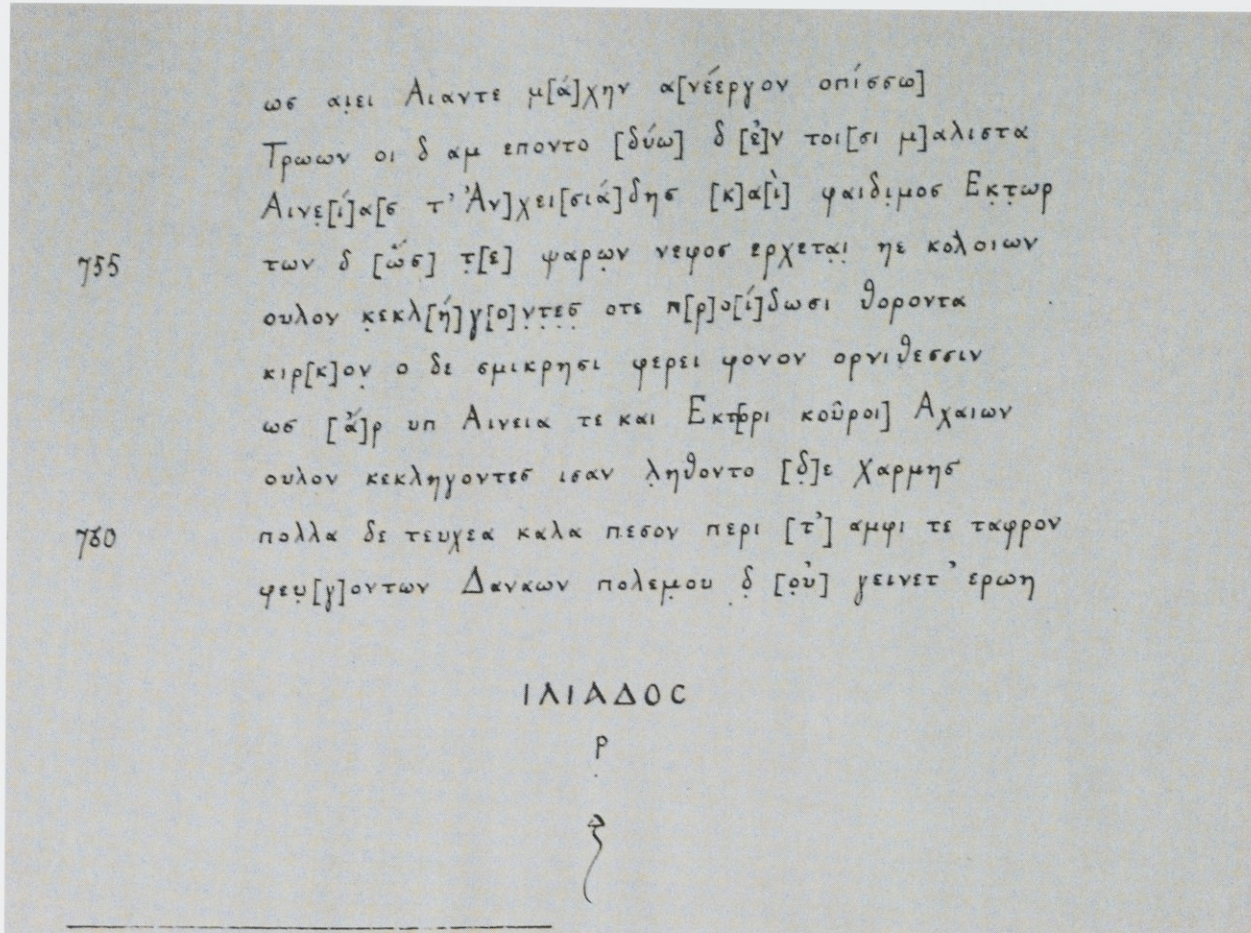 ως αιει Αιαντε μ[ά]χην α[νέεργον οπίσσω]
Τρωων οι δ αμ εποντο [δύω] δ [ἐ]ν τοι[σι μ]αλιστα
Αινẹ[ί]α[ς τ' Ἀν]χει[σιά]δης [κ]α[ὶ] φαιδιμ̣ος Εκτ̣ωρ
755 των δ [ὥς] τ̣[ε] ψαρω̣ν νεφος ερχετα̣ι̣ ηε κολοιων
ουλον κ̣εκλ[ή]γ[ο]ν̣τ̣ε̣ς̣ οτε π[ρ]ο[ί]δωσι θοροντα
κιρ[κ]ον̣ ο δε σμικρησι φερει φονον ορνιθεσσιν
ως [ἄ]ρ υπ Αινεια τε και Εκτ[ορι κοῦροι] Αχαιων
ουλον κεκληγοντες ισαν λ̣ηθοντο [δ̣]ε χαρμης
760 πολλα δε τευχεα καλα πεσον περι [τ'] αμφι τε ταφρον
φευ̣[γ]οντων Δανκων πολεμ̣ου δ̣ [ο̣ὐ] γεινετ' ερωη
ΙΛΙΑΔΟC
Ρ